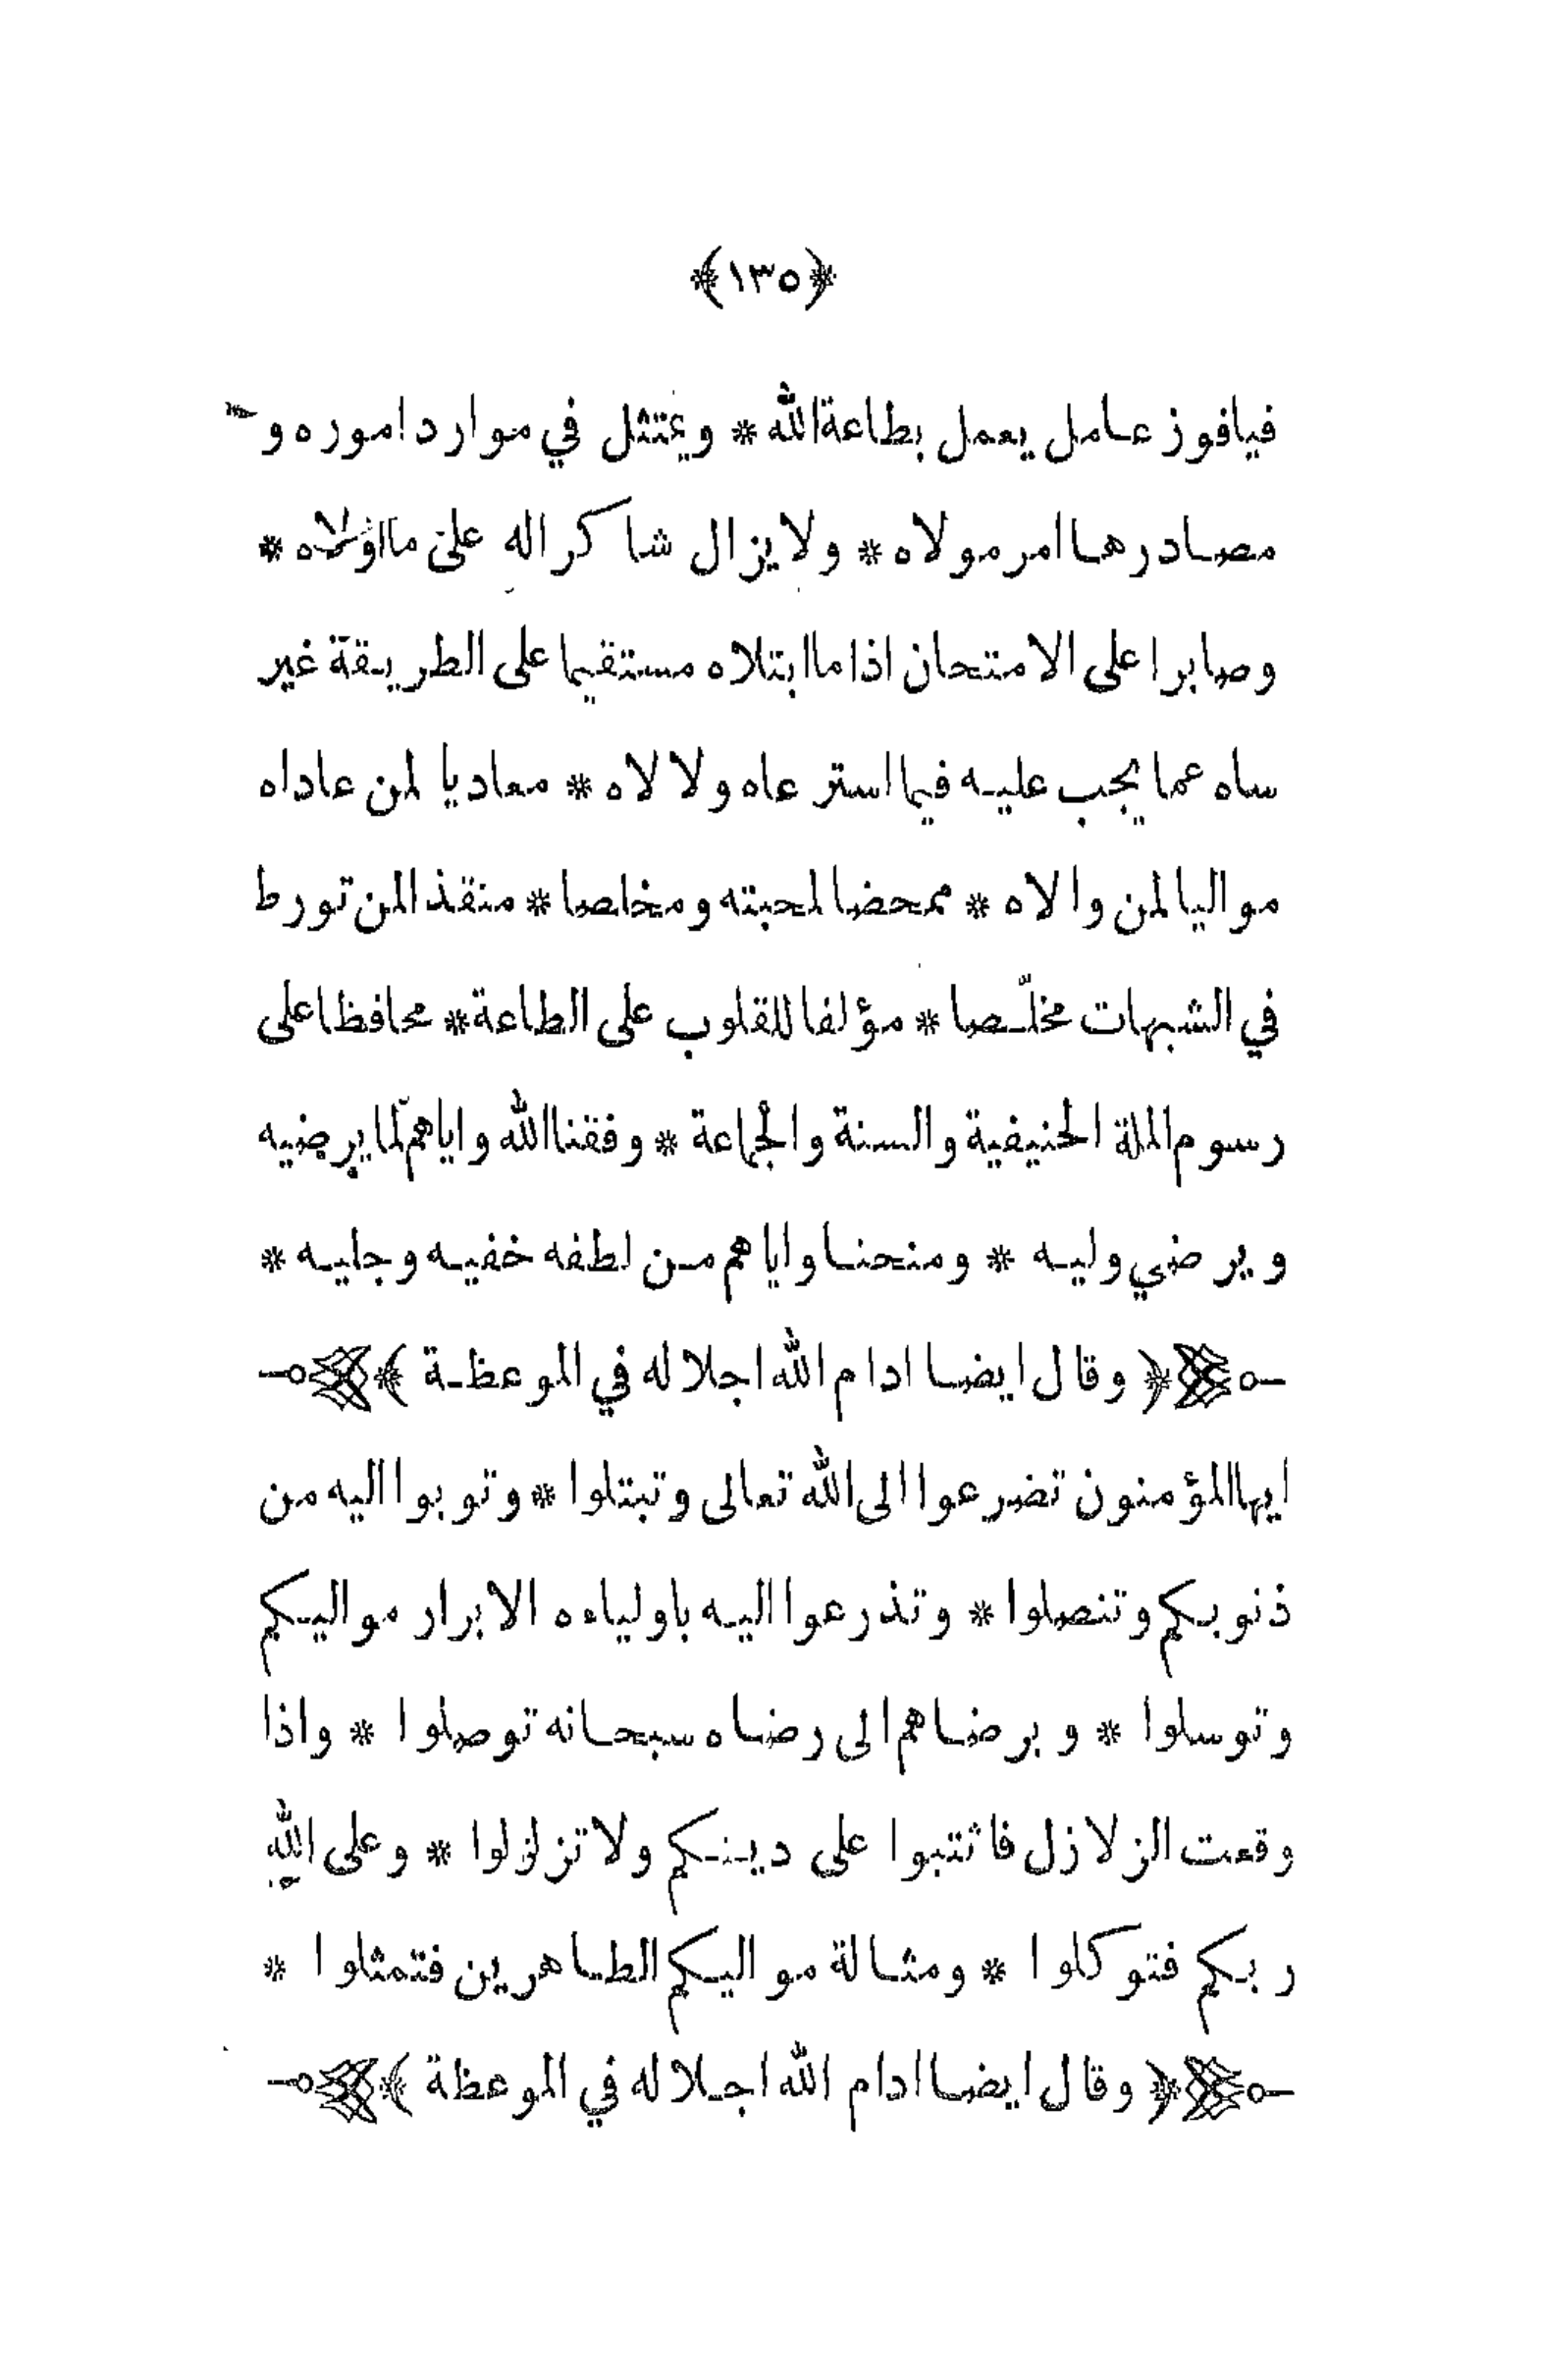 ﴿١٣٥﴾
فيافوز عامل يعمل بطاعة الله * ويمتثل في موارد اموره و
مصادرها امر مولاه * ولا يزال شاكرا له على ما اولاه *
وصابرا على الامتحان اذا ما ابتلاه مستقيما على الطريقة غير
ساه عما يجب عليه فيما استرعاه ولا لاه * معاديا لمن عاداه
مواليا لمن والاه * ممحضا لمحبته ومخلصا * منقذا لمن تورط
في الشبهات مخلّصا * مؤلفا للقلوب على الطاعة * محافظا على
رسوم الملة الحنيفية والسنة والجماعة * وفقنا الله واياهم لما يرضيه
ويرضي وليه * ومنحنا واياهم من لطفه خفيه وجليه *
﴿ وقال ايضا ادام الله اجلاله في الموعظة ﴾
ايها المؤمنون تضرعوا الى الله تعالى وتبتلوا * وتوبوا اليه من
ذنوبكم وتنصلوا * وتذرعوا اليه باولياءه الابرار مواليكم
وتوسلوا * وبرضاهم الى رضاه سبحانه توصلوا * واذا
وقعت الزلازل فاثتبوا على دينكم ولا تزلزلوا * وعلى الله
ربكم فتوكلوا * ومثالة مواليكم الطاهرين فتمثلوا *
﴿ وقال ايضا ادام الله اجلاله في الموعظة ﴾